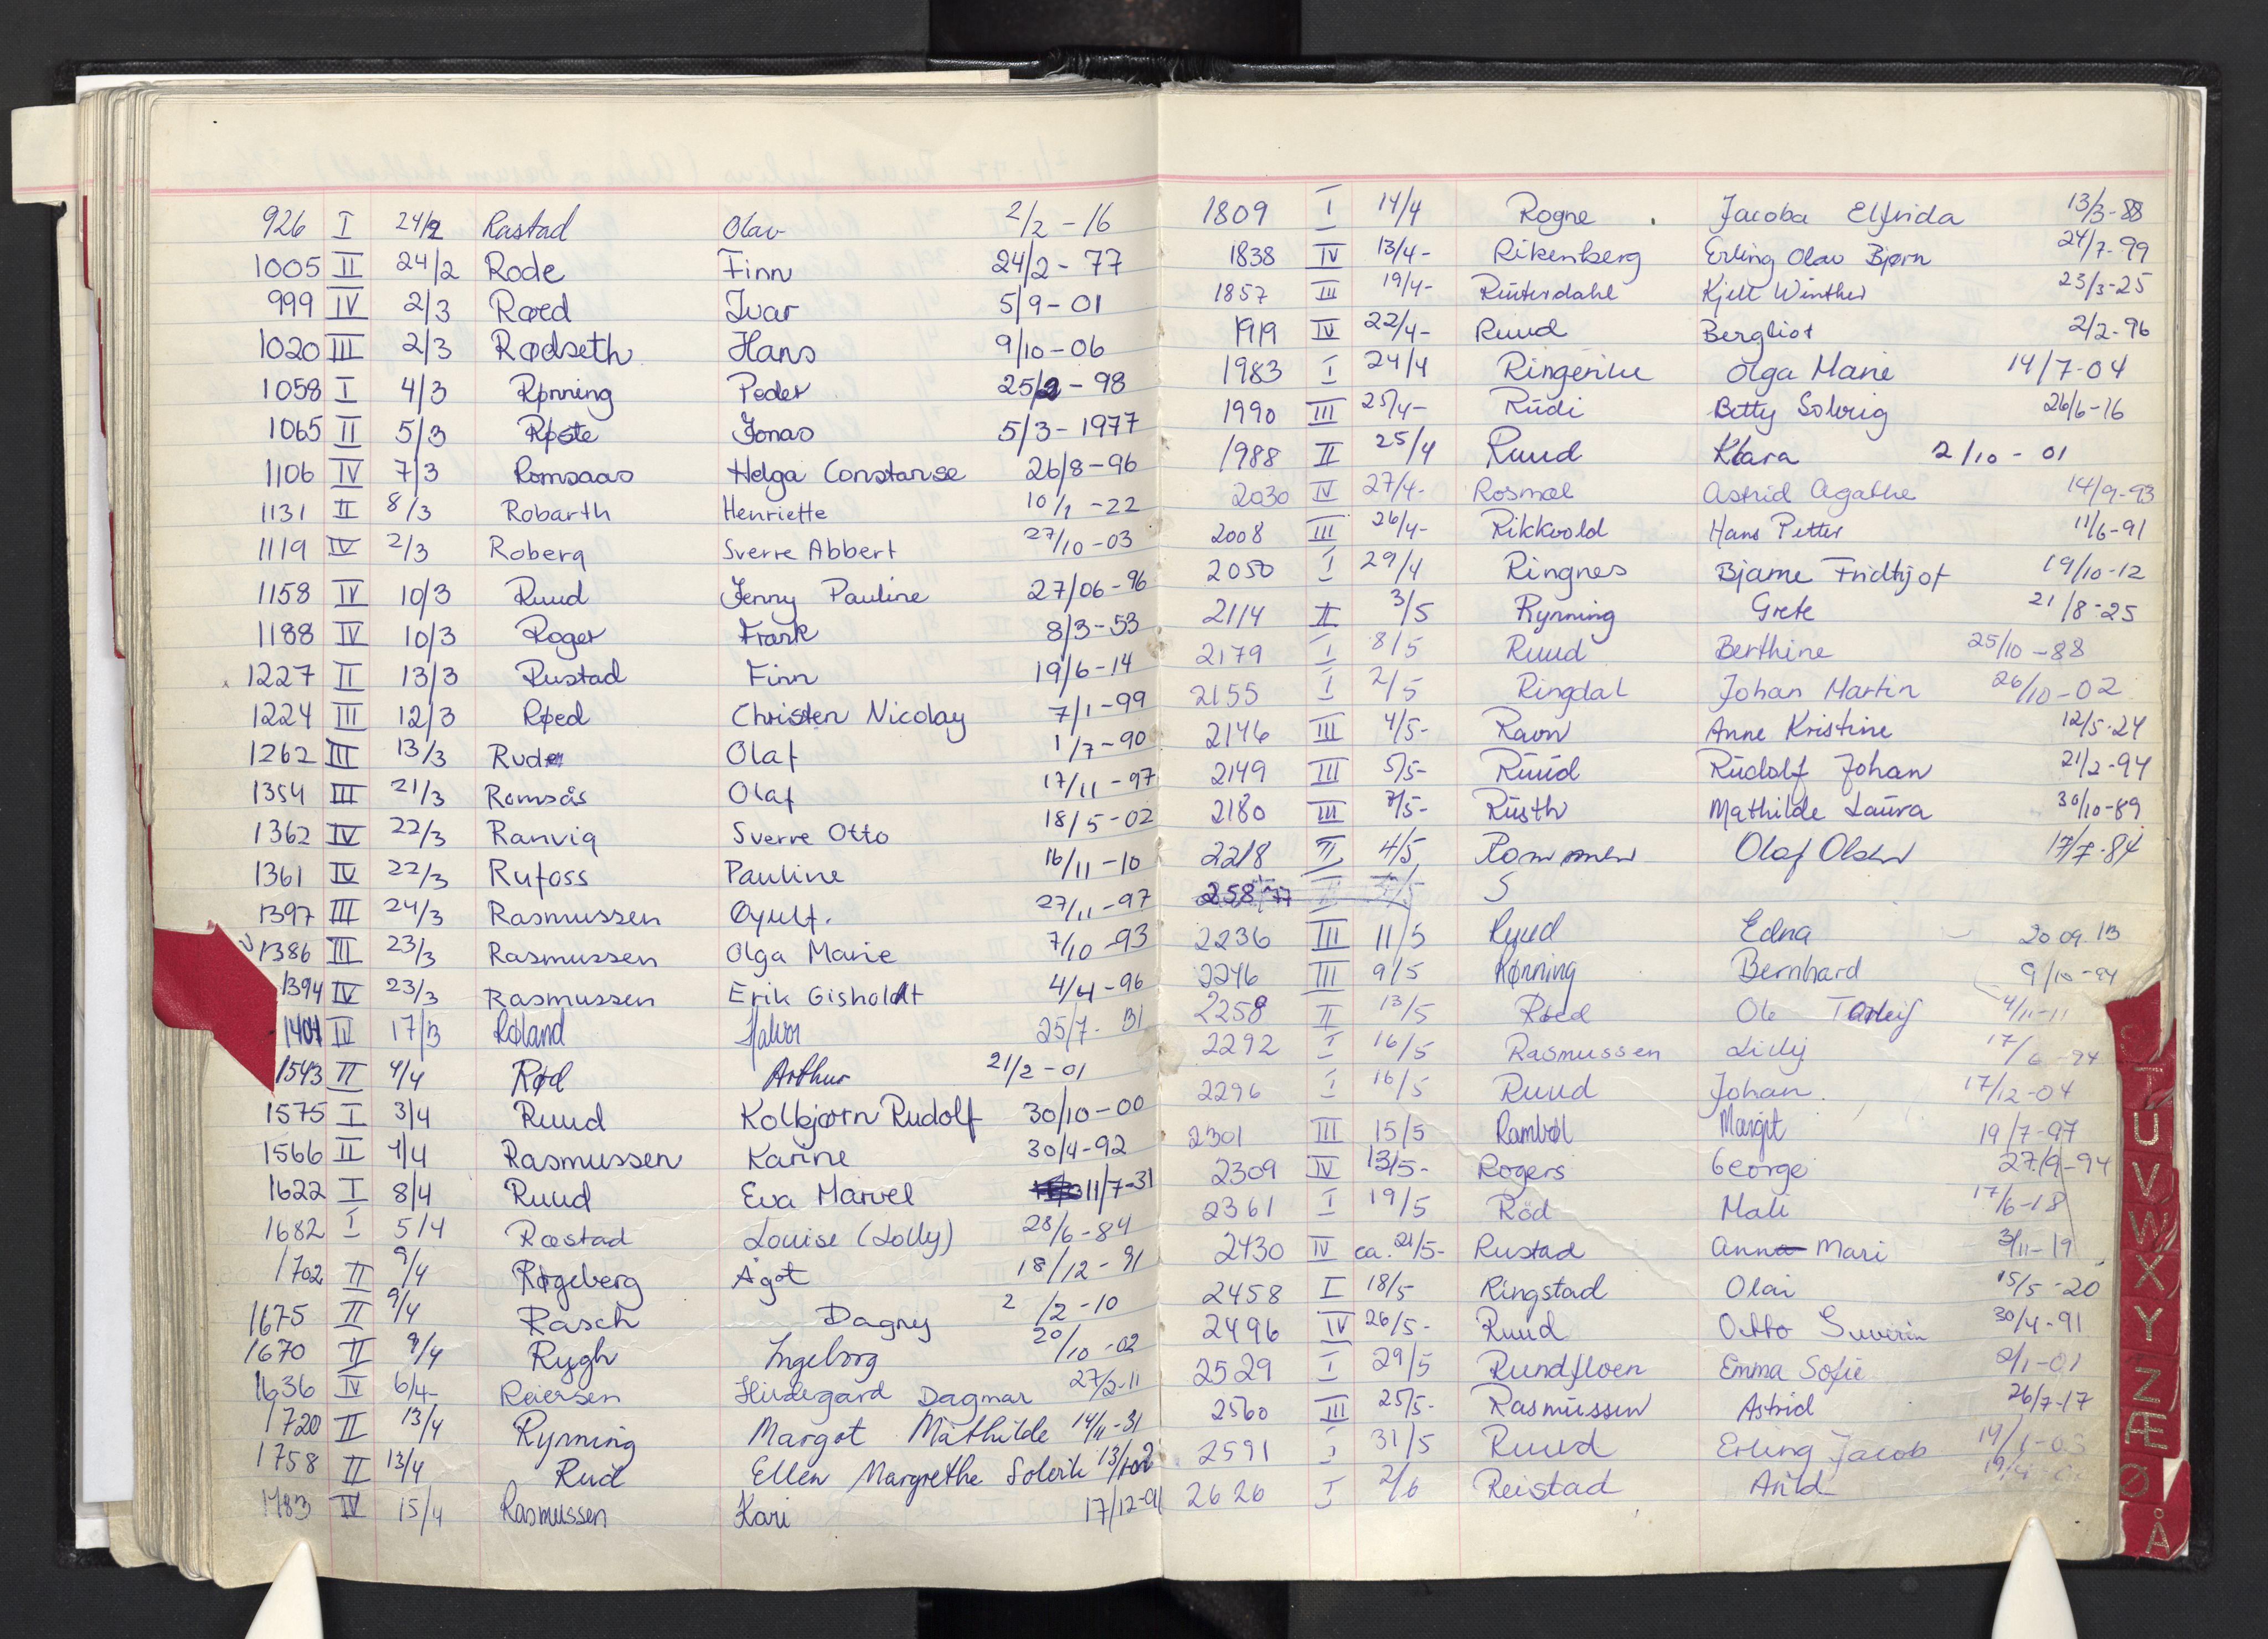 926 I 24/2 Rastad Olav 2/2 - 16
1005 II 24/2 Rode Finn 24/2 - 77
999 IV 2/3 Røed Ivar 5/9 - 01
1020 III 2/3 Rødseth Hans 9/10 - 06
1058 I 4/3 Rønning Peder 25/2 - 98
1065 II 5/3 Røste Jonas 5/3 - 1977
1106 IV 7/3 Romsaas Helga Constanse 26/8 - 96
1131 II 8/3 Robarth Henriette 10/1 - 22
1119 IV 2/3 Roberg Sverre Abbert 27/10 - 03
1158 IV 10/3 Ruud Jenny Pauline 27/06 - 96
1188 IV 10/3 Roger Frank 8/3 - 53
1227 II 13/3 Rustad Finn 19/6 - 14
1224 III 12/3 Røed Christen Nicolay 7/1 - 99
1262 III 13/3 Rude Olaf 1/7 - 90
1354 III 21/3 Romsås Olaf 17/11 - 97
1362 IV 22/3 Ranvig Sverre Otto 18/5 - 02
1361 IV 22/3 Rufoss Pauline 16/11 - 10
1397 III 24/3 Rasmussen Øyulf. 27/11 - 97
1386 III 23/3 Rasmussen Olga Marie 7/10 - 93
1394 IV 23/3 Rasmussen Erik Gisholdt 4/4 - 96
1401 IV 17/3 Røland Halvor 25/7 - 31
1543 II 4/4 Rød Arthur 21/2 - 01
1575 I 3/4 Ruud Kolbjørn Rudolf 30/10 - 00
1566 II 4/4 Rasmussen Karine 30/4 - 92
1622 I 8/4 Ruud Eva Marvel 11/7 - 31
1682 I 5/4 Ræstad Louise (Lolly) 28/6 - 84
1702 II 9/4 Røgeberg Ågot 18/12 - 91
1675 II 9/4 Rasch Dagny 2/2 - 10
1670 II 9/4 Rygh Ingeborg 20/10 - 02
1636 IV 6/4 - Reiersen Hildegard Dagmar 27/2 - 11
1720 II 13/4 Rynning Margot Mathilde 14/11 - 31
1758 II 13/4 Rud Ellen Margrethe 13/1-02
1783 IV 15/4 Rasmussen Kari 17/12 - 91
1809 I 14/4 Rogne Jacoba Elfrida 13/3 - 88
1838 IV 13/4 - Rikenberg Erling Olav Bjørn 24/7 - 99
1857 III 19/4 - Rüterdahl Kjell Winther 23/3 - 25
1919 IV 22/4 - Ruud Bergliot 2/2 - 96
1983 I 24/4 Ringerike Olga Marie 14/7 - 04
1990 III 25/4 - Rudi Betty Solveig 26/6 - 16
1988 II 25/4 Ruud Klara 2/10 - 01
2030 IV 27/4 - Rosmæl Astrid Agathe 14/9 - 93
2008 III 26/4 - Rikkvold Hans Petter 11/6 - 91
2050 I 29/4 Ringnes Bjarne Fridtjof 19/10 - 12
2114 II 3/5 Rynning Grete 21/8 - 25
2179 I 8/5 Ruud Berthine 25/10 - 88
2155 I 2/5 Ringdal Johan Martin 26/10 - 02
2146 III 4/5 - Ravn Anne Kristine 12/5 - 24
2149 III 5/5 - Ruud Rudolf Johan 21/2 - 94
2180 III 7/5 - Rusth Mathilde Laura 30/10 - 89
2218 II 4/5 Rommen Olaf Olsen 17/7 - 84
258 77 S
2236 III 11/5 Ryud Edna 20 09. 13
2246 III 9/5 Rønning Bernhard 9/10 - 94
2258 II 13/5 Røed Ole Tarleif 4/11 - 11
2292 I 16/5 Rasmussen Lilly 17/6 - 94
2296 I 16/5 Ruud Johan 17/12 - 04
2301 III 15/5 Rambøl Margit 19/7 - 97
2309 IV 13/5 - Rogers George 27/9 - 94
2361 I 19/5 Röd Mali 17/6 - 18
2430 IV ca. 21/5 - Rustad Anna Mari 3/11 - 19
2458 I 18/5 - Ringstad Olai 15/5 - 20
2496 IV 26/5 - Ruud Otto Severin 30/4 - 91
2529 I 29/5 Rundfloen Emma Sofie 2/1 - 01
2560 III 25/5 - Rasmussen Astrid 26/7 - 17
2591 I 31/5 Ruud Erling Jacob 14/1 - 03
2626 I 2/6 Reistad Arild
U
V
W
X
Y
Z
Æ
Ø
Å